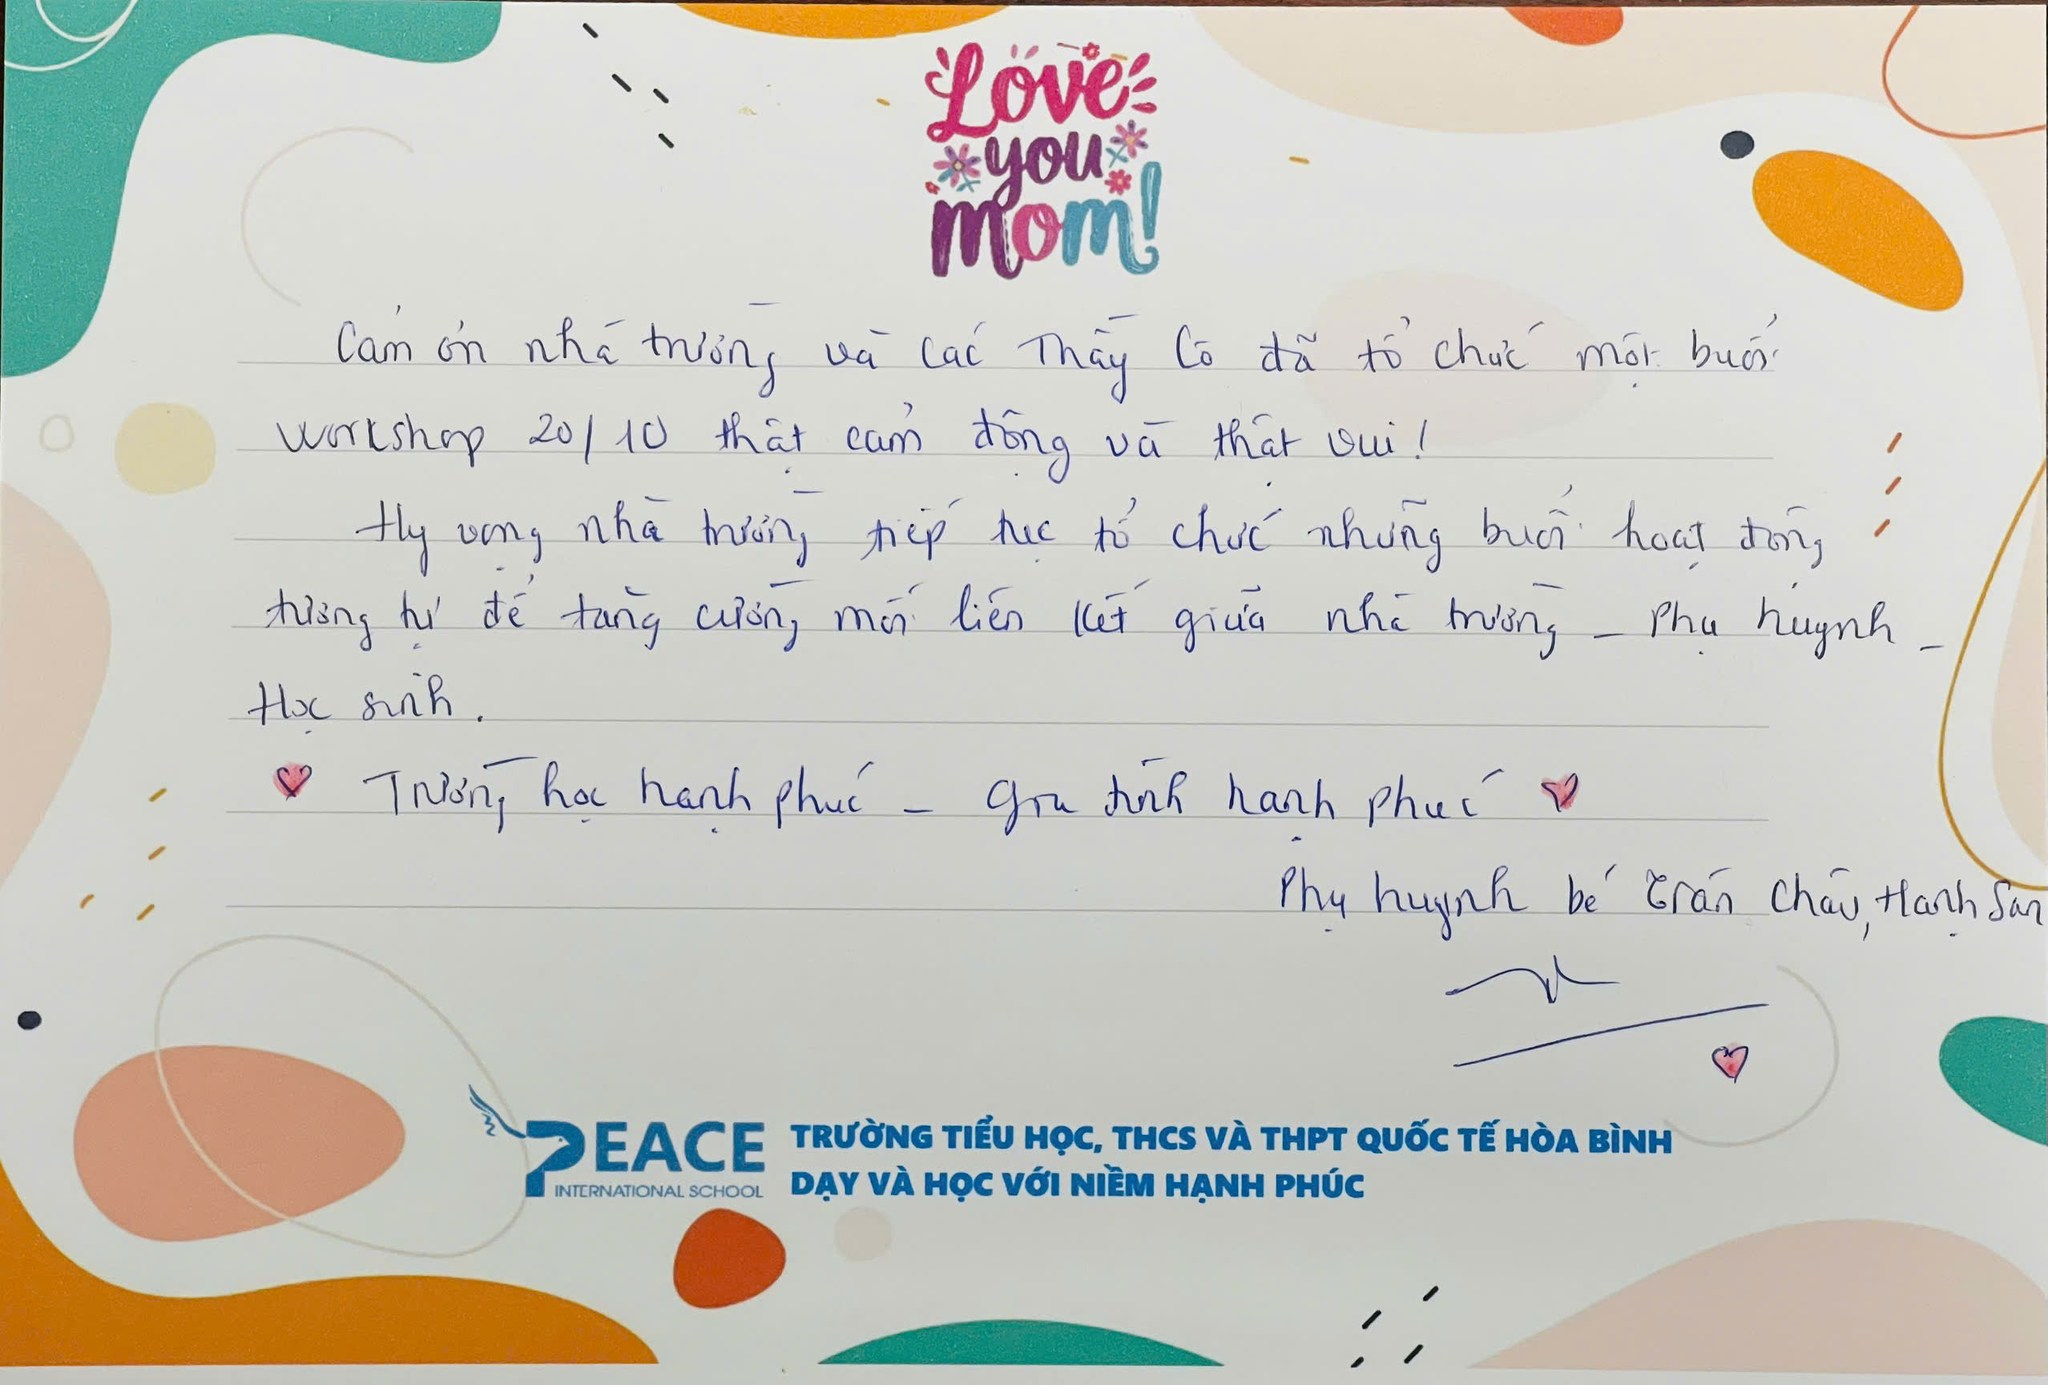 Love
you
mom!
Cảm ơn nhà trường và các Thầy Cô đã tổ chức một buổi
workshop 20/10 thật cảm động và thật vui!
Hy vọng nhà trường tiếp tục tổ chức những buổi hoạt động
tương tự để tăng cường mối liên kết giữa nhà trường – Phụ huynh –
Học sinh.
Trường học hạnh phúc – Gia đình hạnh phúc
Phụ huynh bé Trân Châu, Hạnh San
PEACE
INTERNATIONAL SCHOOL
TRƯỜNG TIỂU HỌC, THCS VÀ THPT QUỐC TẾ HÒA BÌNH
DẠY VÀ HỌC VỚI NIỀM HẠNH PHÚC